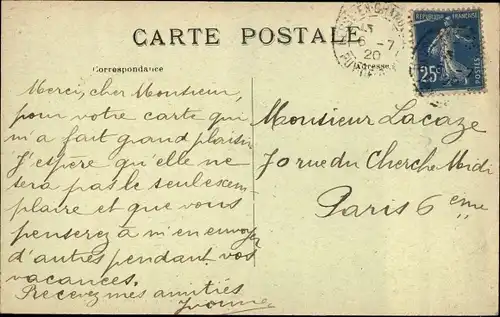 CARTE POSTALE
Correspondance
Adresse
RÉPUBLIQUE FRANÇAISE
25c
6 -7
20
Merci, cher Monsieur,
pour votre carte qui
m'a fait grand plaisir
J'espère qu'elle ne
sera pas le seul exem-
plaire et que vous
penserez à m'en envoyer
d'autres pendant vos
vacances.
Recevez mes amitiés
Yvonne
Monsieur Lacaze
70 rue du Cherche Midi
Paris 6eme